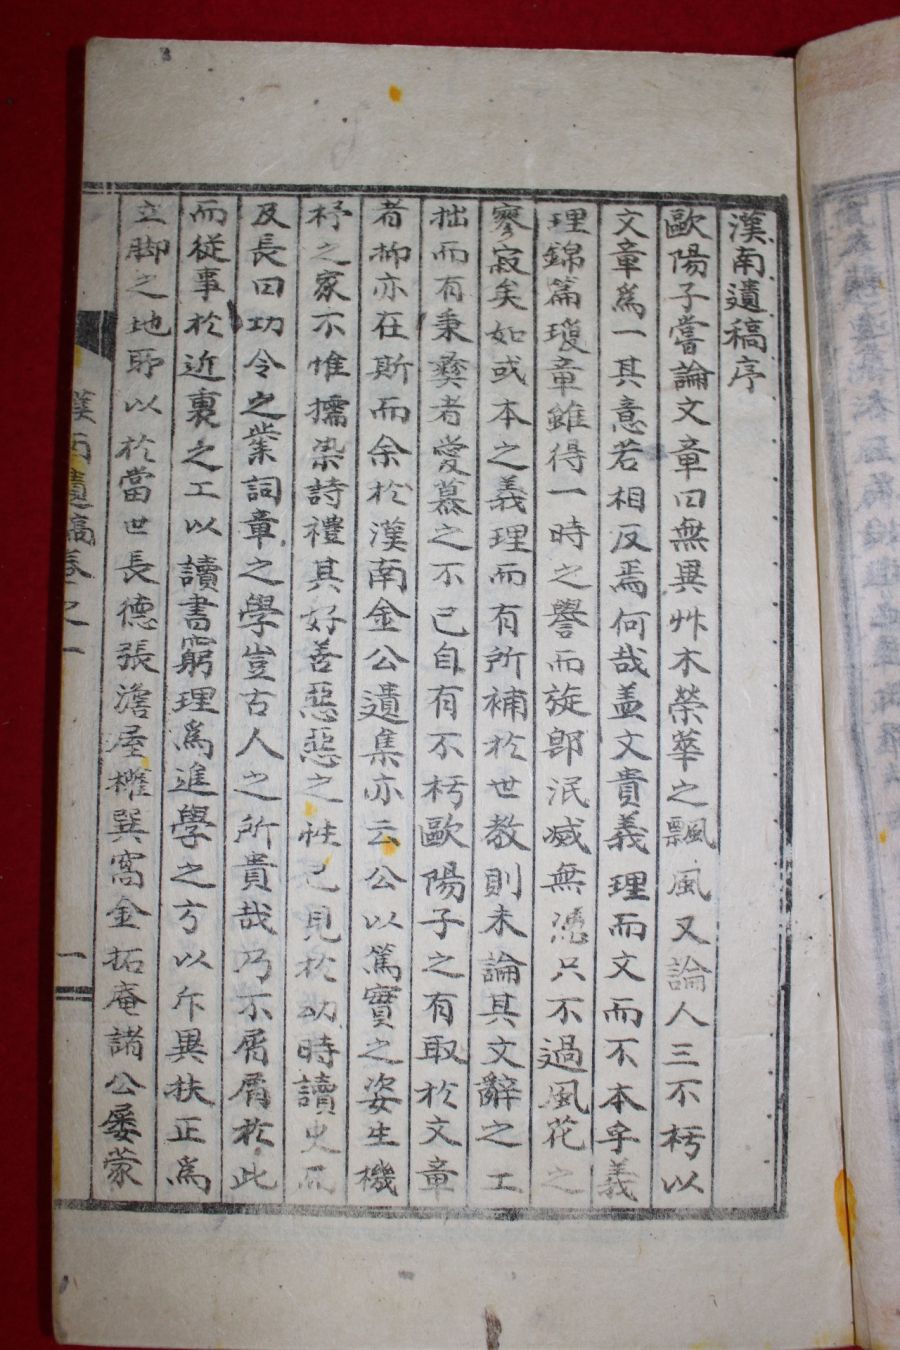 漢南遺稿序
歐陽子嘗論文章曰無異艸木榮華之飄風又論人三不朽以
文章爲一其意若相反焉何哉盖文貴義理而文而不本乎義
理錦篇瓊章雖得一時之譽而旋卽泯滅無憑只不過風花之
寥寂矣如或本之義理而有所補於世教則未論其文辭之工
拙而有秉彛者愛慕之不已自有不朽歐陽子之有取於文章
者抑亦在斯而余於漢南金公遺集亦云公以篤實之姿生機
杼之家不惟擩染詩禮其好善惡惡之性已見於幼時讀史而
及長曰功令之業詞章之學豈古人之所貴哉乃不屑屑於此
而從事於近裏之工以讀書窮理爲進學之方以斥異扶正爲
立脚之地耶以於當世長德張澹屋權巽窩金拓庵諸公屡蒙
漢南遺稿卷之一
一